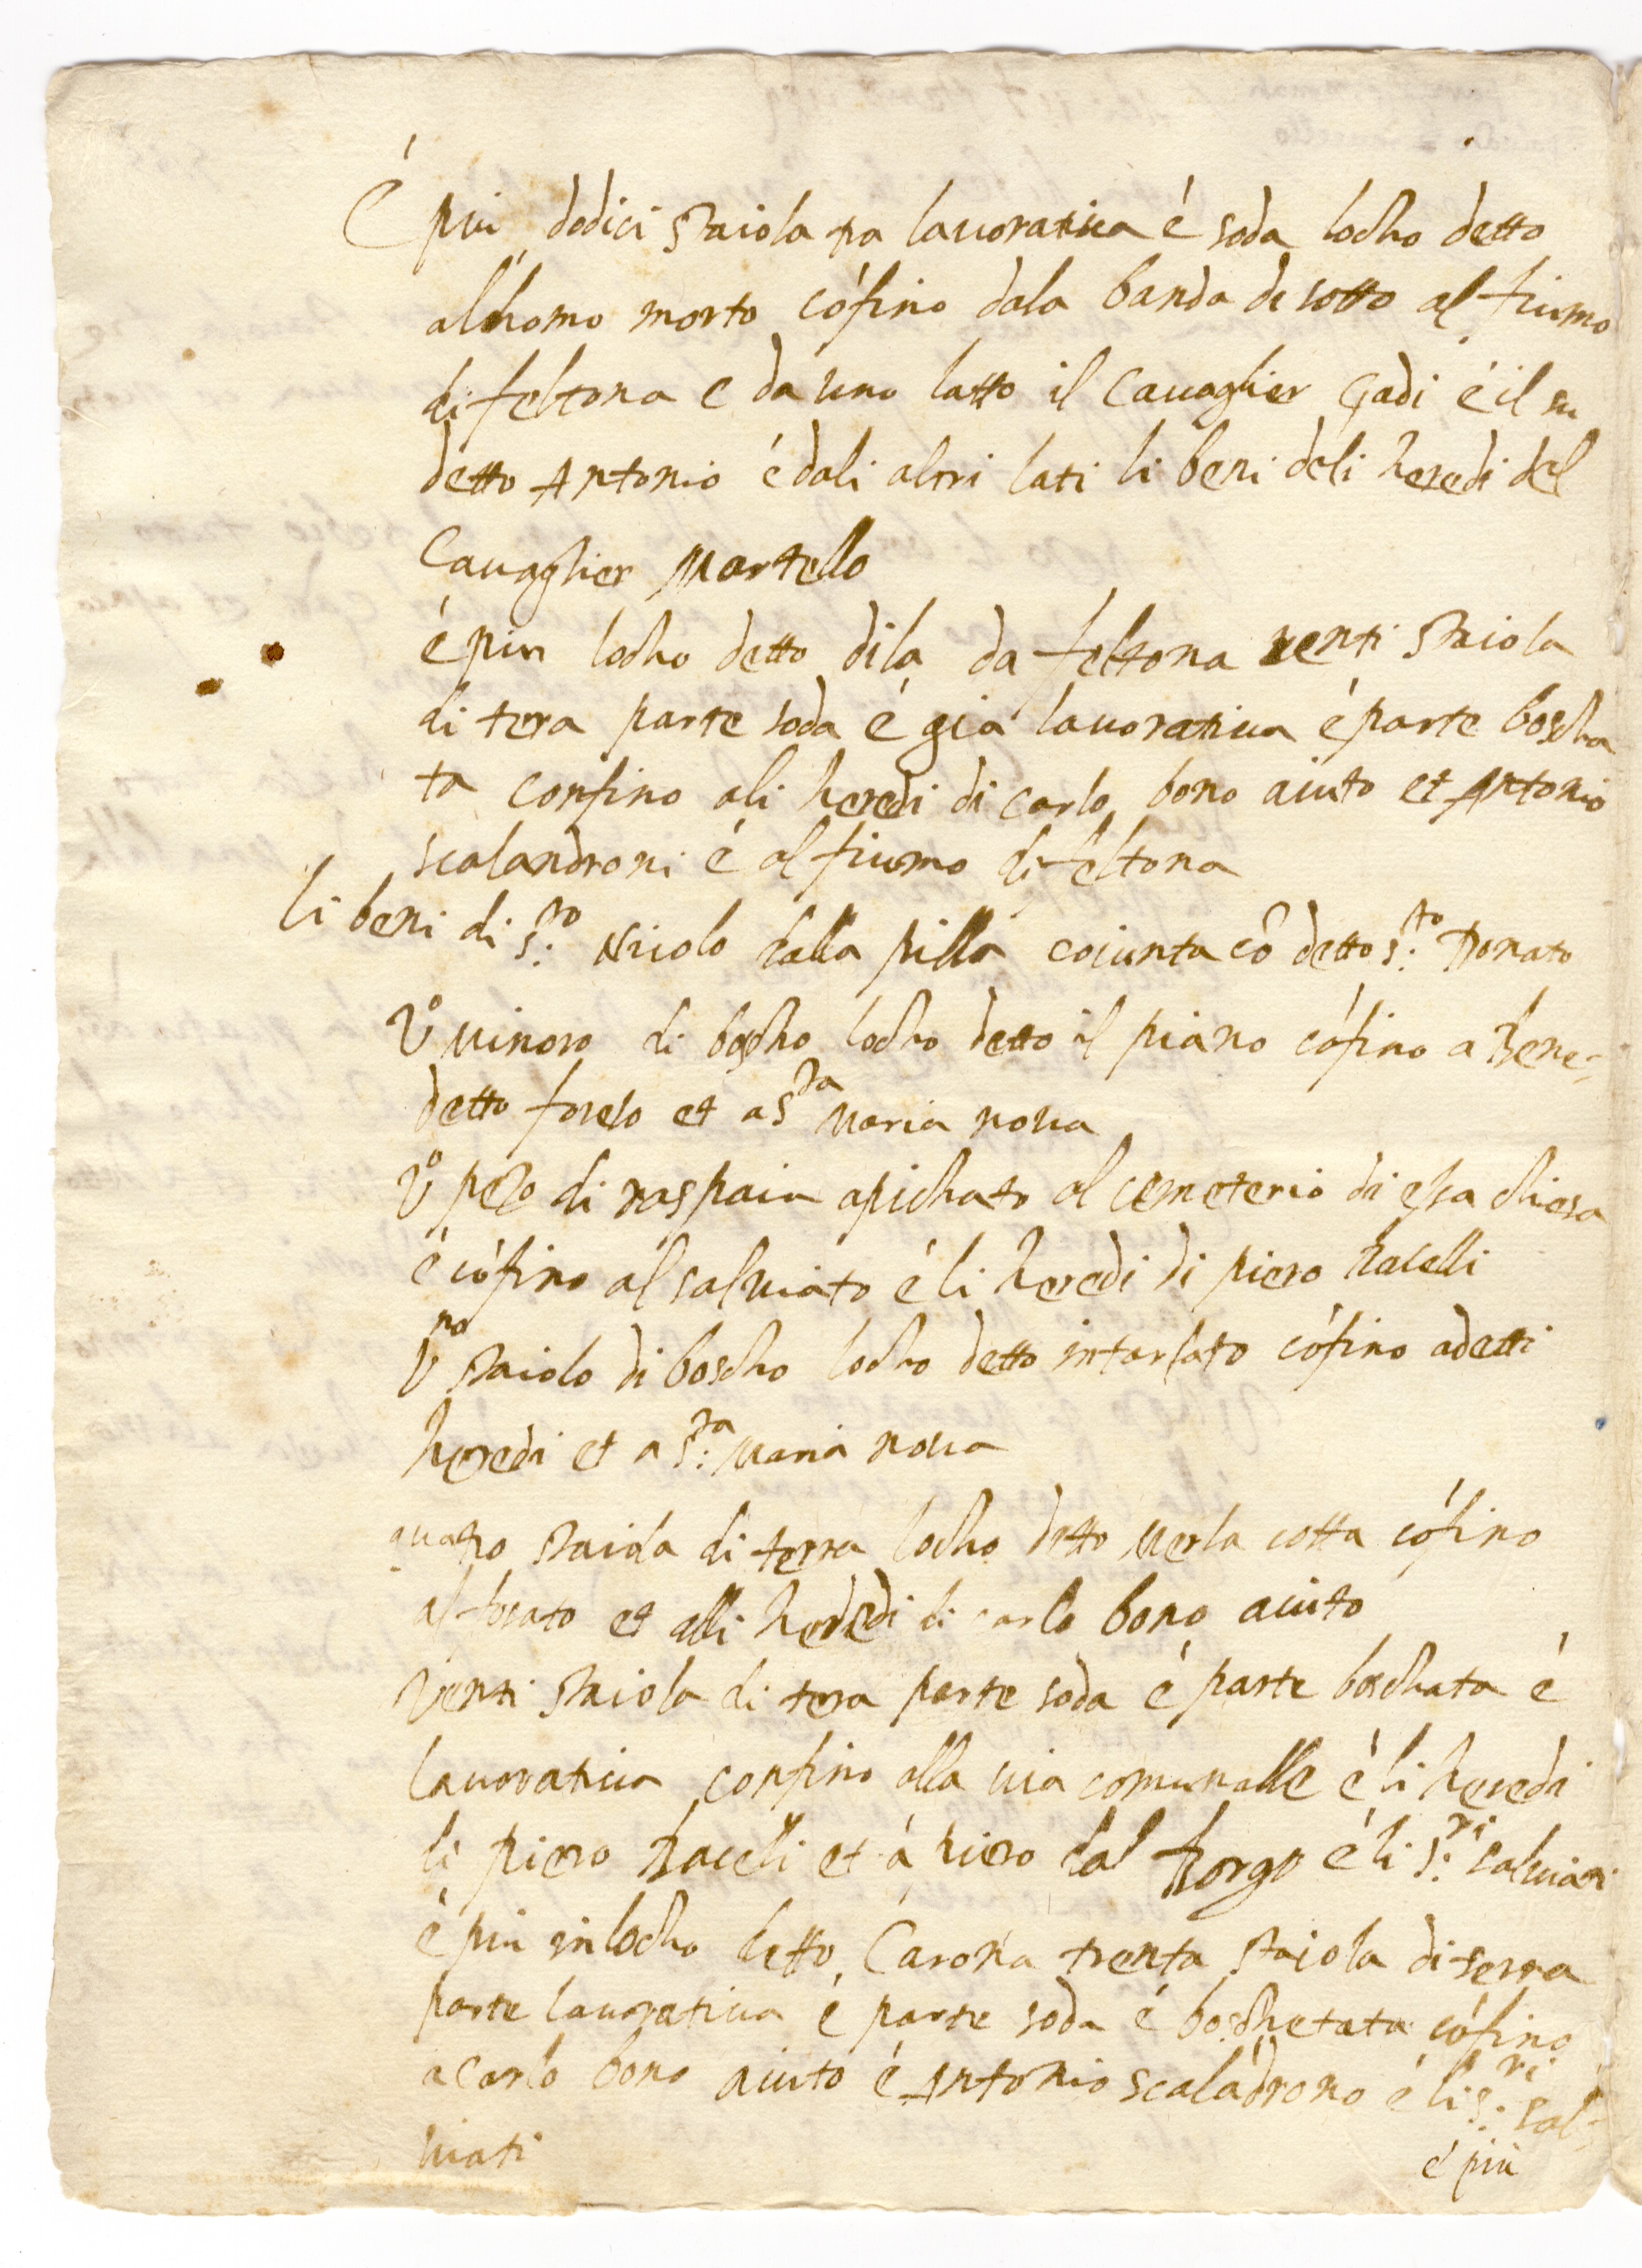 É piu dodici staiola tra lauoratiua é soda locho detto
alhomo morto cófino dala banda di sotto al fiumo
di feltona e da uno latto il Cauaglier Gadi é il su
detto Antonio é dali altri lati li beni deli heredi del
Cauaglier Martello
é piu locho detto dila da feltona venti staiola
di tera parte soda é gia lauoratiua é parte boscha
ta confino ali heredi di carlo bono aiuto et Antonio
scalandroni é al fiumo di feltona
li beni di s:to Nicolo dalla pilla coiunta cô detto s:to Donato
Vo di boscho locho detto il piano cófino a Bene-
detto et a Sta Maria noua
Vo pezo di apichato al cemeterio di essa chiesa
é cófino al saluiato é li heredi di piero
Vno staiolo di boscho locho detto intarlato cófino adetti
heredi et a S:ta Maria noua
quatro staiola di terra locho detto Merla cotta cófino
al fosato et alli heredi di carlo bono aiuto
Venti staiola di tera parte soda é parte boschata é
lauoratiua confino alla uia comunalle é li heredi
di piero et á piero dal Borgo é li s:ri saluiati
é piu in locho detto Carona trenta staiola di terra
parte lauoratiua é parte soda é boschetata cófino
a carlo bono aiuto é Antonio scaládrono é li s:ri sal-
uiati
é piu